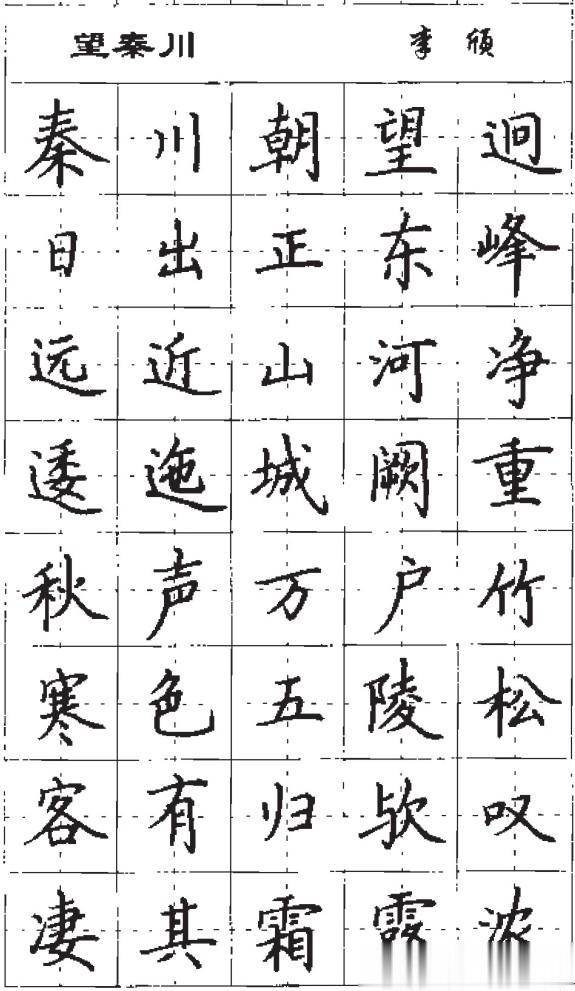 望秦川 李颀
秦川朝望迥
日出正东峰
远近山河净
逶迤城阙重
秋声万户竹
寒色五陵松
客有归欤叹
凄其霜露浓